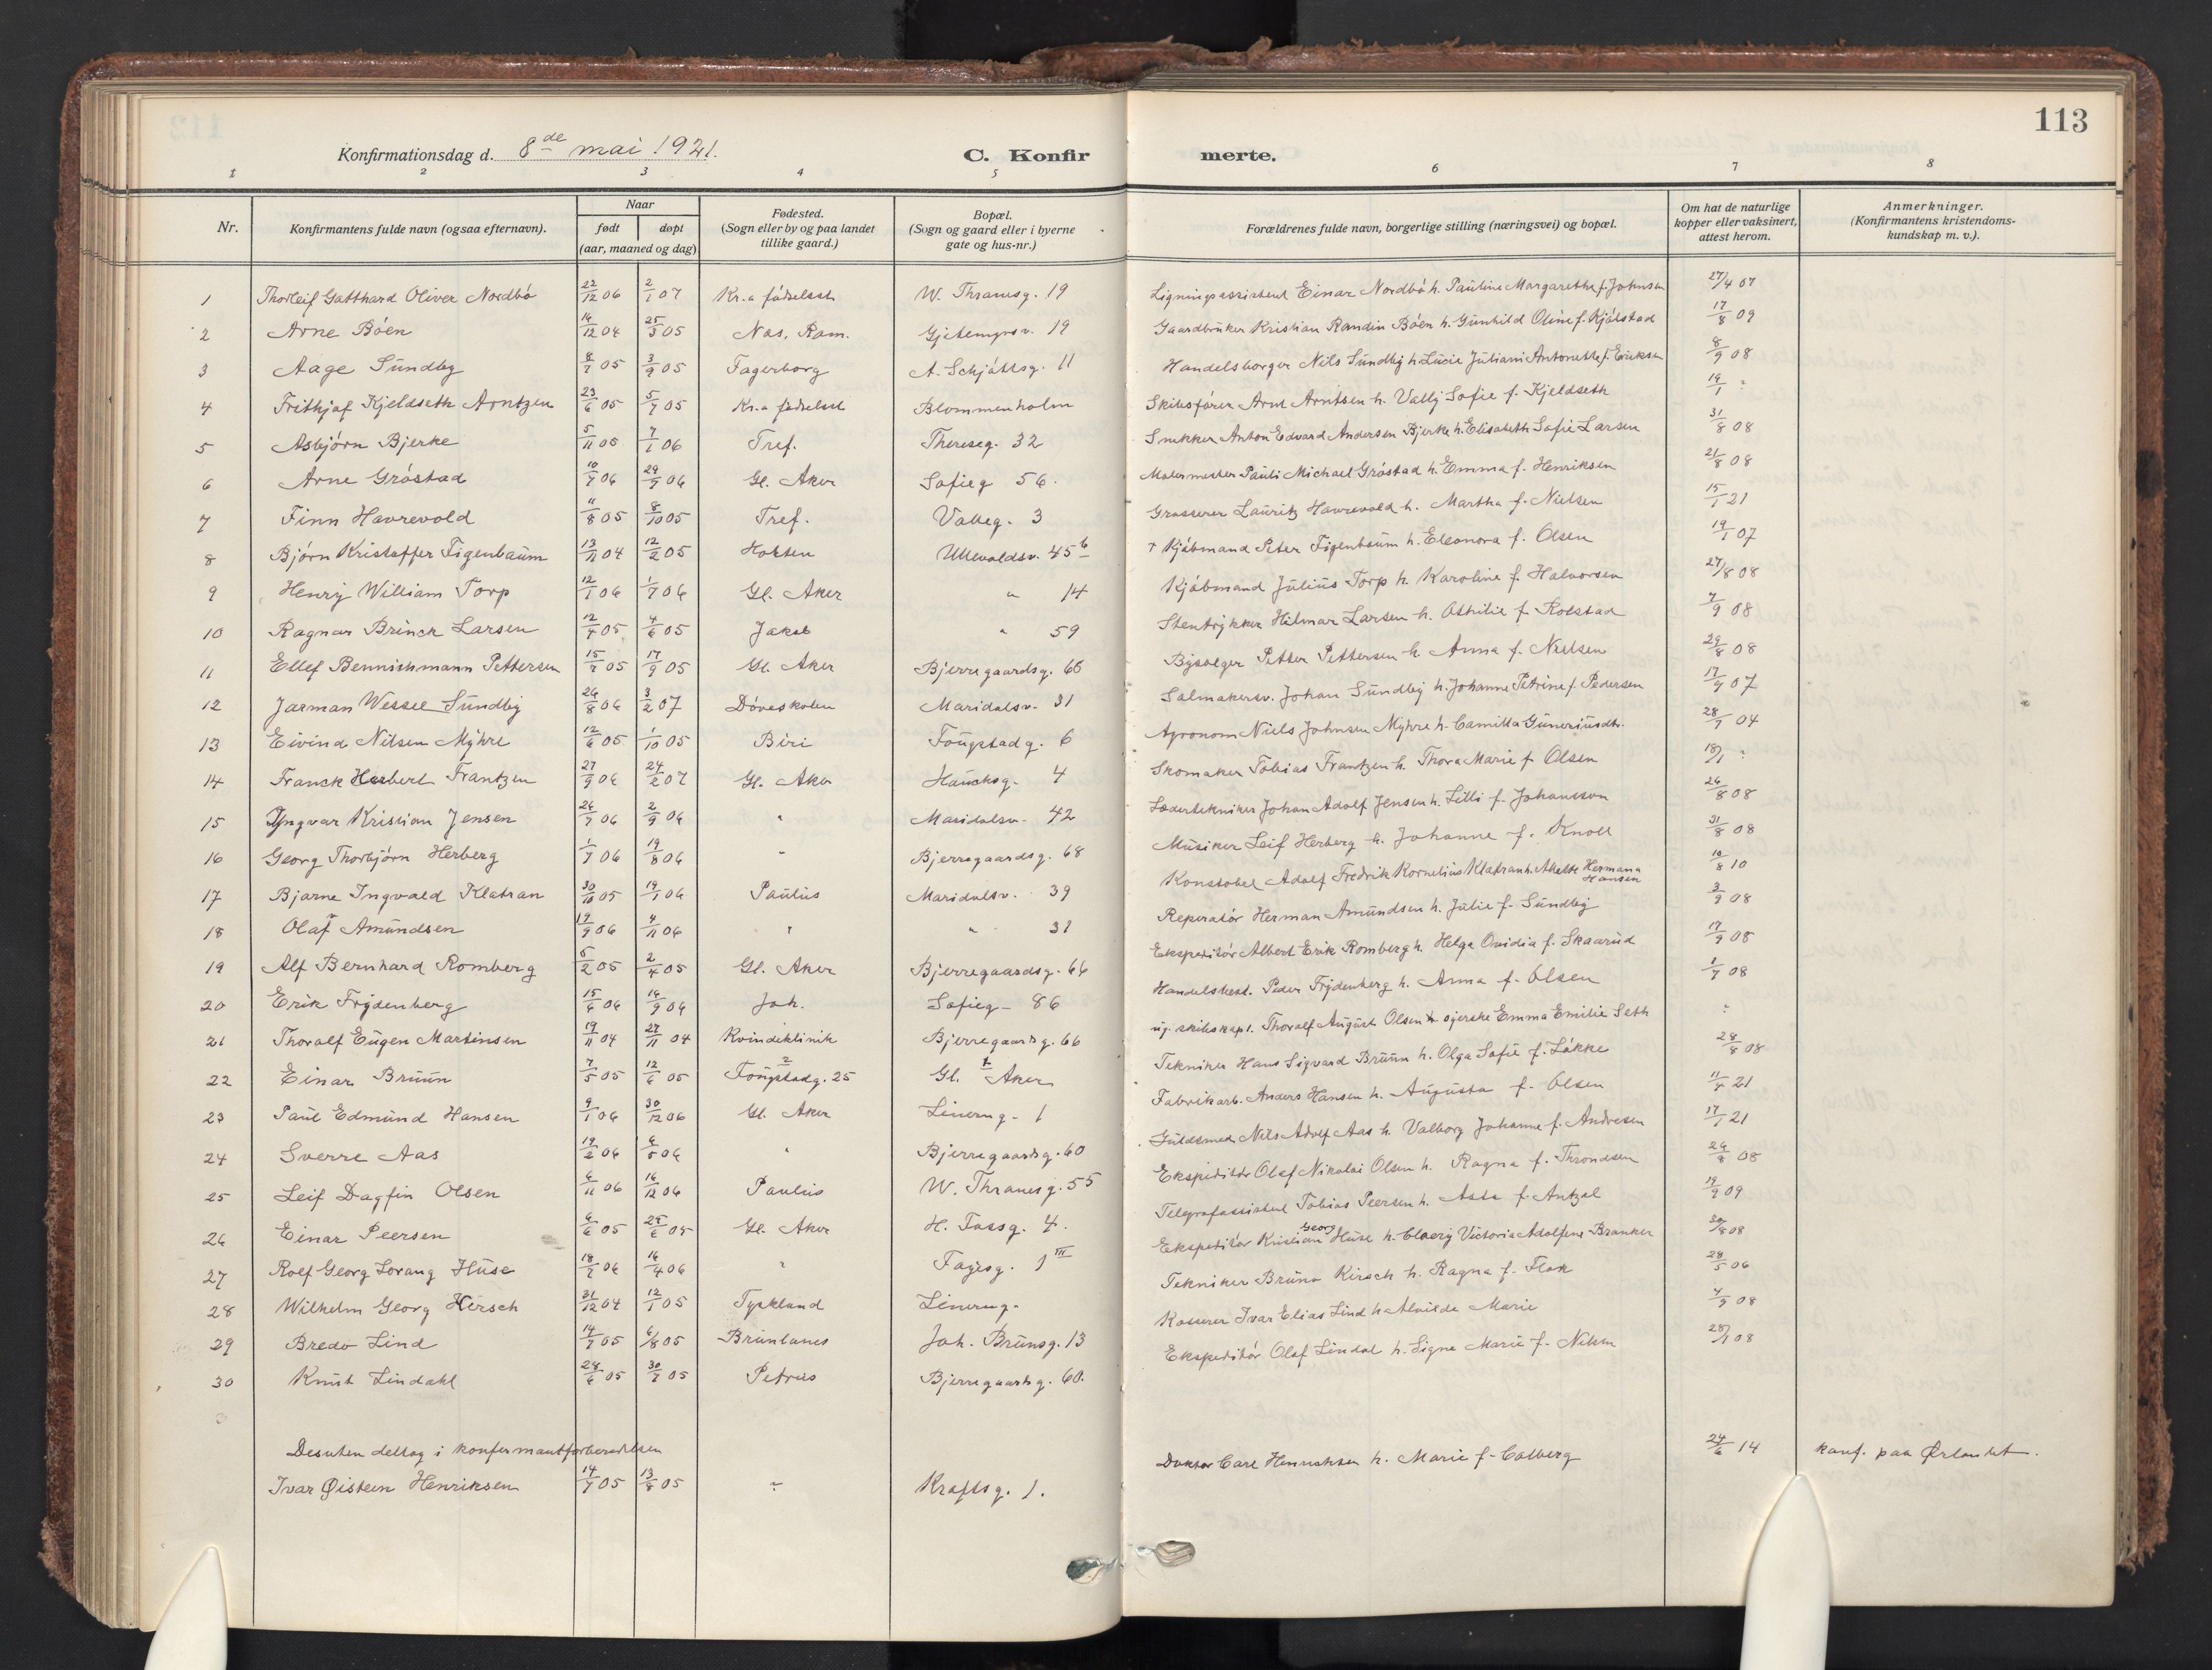 113
Konfirmationsdag d. 8de mai 1921. C. Konfirmerte.
1 2 3 4 5 6 7 8
Nr. Konfirmantens fulde navn (ogsaa efternavn). Naar født døpt (aar, maaned og dag) Fødested. (Sogn eller by og paa landet tillike gaard.) Bopæl. (Sogn og gaard eller i byerne gate og hus-nr.) Forældrenes fulde navn, borgerlige stilling (næringsvei) og bopæl. Om hat de naturlige kopper eller vaksinert, attest herom. Anmerkninger. (Konfirmantens kristendomskundskap m. v.).
1 Thorleif Gatthard Oliver Nordbö 22/12 06 2/1 07 Kr.a födselsst W. Thranesg. 19 Ligningsassistent Einar Nordbö h. Pauline Margarethe f. Johnsen 27/4 07
2 Arne Böen 14/12 04 25/3 05 Nes, Rom. Gjetemyrsv. 19 Gaardbruker Kristian Randin Böen h. Gunhild Oline f. Kjölstad 17/8 09
3 Aage Sundby 8/7 05 3/9 05 Fagerborg A. Schjöttsg. 11 Handelsborger Nils Sundby h. Lucie Juliani Antonette f. Eriksen 8/9 08
4 Frithjof Kjeldseth Arntzen 23/6 05 5/7 05 Kr.a födselsst Blommenholm Skibsförer Arnt Arntsen h. Valby Sofie f. Kjeldseth 14/1 ?
5 Asbjörn Bjerke 5/11 05 7/1 06 Tref. Thereseg. 32 Snekker Anton Edvard Andersen Bjerke h. Elisabeth Sofie Larsen 31/8 08
6 Arne Gröstad 10/7 06 29/9 06 Gl. Aker Sofieg 56. Malermester Pauli Michael Gröstad h. Emma f. Henriksen 21/8 08
7 Finn Havrevold 11/8 05 8/10 05 Tref. Valleg. 3 Grosserer Lauritz Havrevold h. Martha f. Nielsen 15/1 21
8 Björn Kristoffer Figenbaum 13/11 04 12/2 05 Holsten Ullevoldsv. 45 b + Kjöbmand Peter Figenbaum h. Eleonora f. Olsen 19/1 07
9 Henry William Torp 12/1 06 1/7 06 Gl. Aker " 14 Kjöbmand Julius Torp h. Karoline f. Halvorsen 27/8 08
10 Ragnar Brinck Larsen 12/4 05 4/6 05 Jakob " 59 Stentrykker Hilmar Larsen h. Othilie f. Kolstad 7/9 08
11 Ellef Bennichmann Pettersen 15/7 05 17/9 05 Gl. Aker Bjerregaardsg. 66 Bysælger Petter Pettersen h. Anna f. Nielsen 29/8 08
12 Jarman Wessel Sundby 26/8 06 3/2 07 Döveskolen Maridalsv. 31 Salmakersv. Johan Sundby h. Johanne Petrine f. Pedersen 17/9 07
13 Eivind Nilsen Myhre 12/6 05 1/10 05 Biri Fougstadg. 6 Agronom Niels Johnsen Myhre h. Camilla Guneriusdtr. 28/7 04
14 Franck Herbert Frantzen 27/9 06 24/2 07 Gl. Aker Hauchsg. 4 Skomaker Tobias Frantzen h. Thora Marie f. Olsen 18/1 ?
15 Yngvar Kristian Jensen 26/7 06 2/9 06 " Maridalsv. 42 Lædertekniker Johan Adolf Jensen h. Lilli f. Johansson 26/8 08
16 Georg Thorbjörn Herberg 1/7 06 19/8 06 " Bjerregaardsg. 68 Musiker Leif Herberg h. Johanne f. Knoll 31/8 08
17 Bjarne Ingvald Klatran 30/10 05 19/1 06 Paulus Maridalsv. 39 Konstabel Adolf Fredrik Kornelius Klatran h. Hermana Hansen 10/8 10
18 Olaf Amundsen 19/9 06 4/11 06 " " 31 Reperatör Herman Amundsen h. Julie f. Sundby 3/9 08
19 Alf Bernhard Romberg 5/2 05 2/4 05 Gl. Aker Bjerregaardsg. 66 Ekspeditör Albert Erik Romberg h. Helga Ovidia f. Skaarud 17/9 08
20 Erik Frydenberg 15/6 06 16/9 06 Joh. Sofieg - 86 Handelsbest. Peder Frydenberg h. Anna f. Olsen 1/7 08
21 Thoralf Eugen Martinsen 19/11 04 27/11 04 Kvindeklinik Bjerregaardsg. 66 ug. skibskapt. Thoralf August Olsen syerske Emma Emilie Seth ?
22 Einar Bruun 7/5 05 12/6 05 Fougstadg. 25 Gl. Aker Tekniker Hans Sigvard Bruun h. Olga Sofie f. Lökke 28/8 08
23 Paul Edmund Hansen 9/1 06 30/12 06 Gl. Aker Lineng. 1 Fabrikarb. Anders Hansen h. Augusta f. Olsen 11/4 21
24 Sverre Aas 19/2 06 6/5 06 " Bjerregaardsg. 60 Guldsmed Nils Adolf Aas h. Valborg Johanne f. Andresen 17/1 21
25 Leif Dagfin Olsen 6/11 06 16/12 06 Paulus W. Thranesg. 55 Ekspeditör Olaf Nikolai Olsen h. Ragna f. Throndsen 26/8 08
26 Einar Peersen 6/6 05 25/6 05 Gl. Aker H. Tossg. 4. Telegrafassistent Tobias Peersen h. Asta f. Antzal 19/9 09
27 Rolf Georg Lorang Huse 18/2 06 16/4 06 " Fagesg. 1 III Ekspeditör Kristian Georg Huse h. Victoria Adolfine Branker 30/8 08
28 Wilhelm Georg Kirsch 31/12 04 12/1 05 Tyskland Lineng. Tekniker Bruno Kirsch h. Ragna f. Flok 28/5 06
29 Bredo Lind 14/7 05 6/8 05 Brunlanes Joh. Brunsg. 13 Kasserer Ivar Elias Lind h Alvilde Marie 4/9 08
30 Knut Lindahl 28/6 05 30/7 05 Petrus Bjerregaardsg. 60. Ekspeditör Olaf Lindal h. Signe Marie f. Nilsen 28/1 08
Desuten deltog i konfermantforberedelsen
Ivar Øistein Henriksen 14/7 05 13/8 05 ? Kraftsg. 1. Doktor Carl Henrichsen h. Marie f. Colberg 24/6 14 konf. paa Ørlandet.